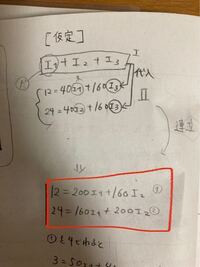 [仮定]
I₁+I₂+I₃ I
代入
12=40I₁+160I₃
24=40I₂+160I₃
II
⇓
12=200I₁+160I₂ ①
24=160I₁+200I₂ ②
①を4でわると
3=50I₁+4